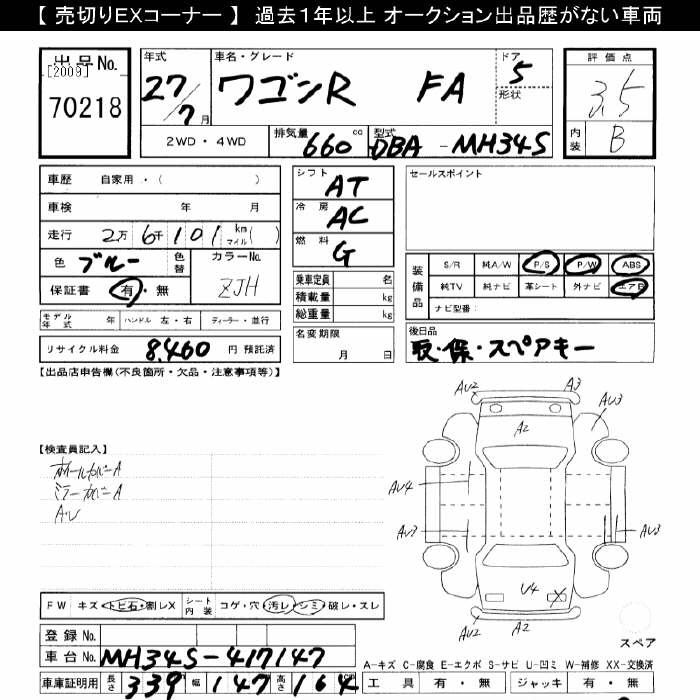 【 売切りEXコーナー 】 過去1年以上 オークション出品歴がない車両
出品No.
[2009]
70218
年式
27/7月
車名・グレード
ワゴンR FA
ドア
5
形状
評価点
3.5
内装
B
2WD・4WD
排気量
660cc
型式
DBA-MH34S
車歴 自家用・( )
車検 年 月
走行 2万 6千 1 0 1 km マイル( )
色 ブルー 色替 カラーNo. ZJH
保証書 有・無
モデル年式 年 ハンドル 左・右 ディーラー・並行
リサイクル料金 8,460 円 預託済
シフト AT
冷房 AC
燃料 G
乗車定員 名
積載量 kg
総重量 kg
名変期限 月 日
セールスポイント
装備品
S/R 純A/W P/S P/W ABS
純TV 純ナビ 革シート 外ナビ エアB
ナビ型番:
後日品
取・保・スペアキー
【出品店申告欄(不良箇所・欠品・注意事項等)】
【検査員記入】
ホールカバーA
ミラーカバーA
AU
AU2 A3 AU3
A2
AU4
AU3 AU3
U4 X
AU2 A2
FW キズ・トビ石・割レX シート内装 コゲ・穴・汚レ・シミ・破レ・スレ
登録No.
車台No. MH34S-417147
車庫証明用 長さ 339 幅 147 高さ 164 cm
スペア
A-キズ C-腐食 E-エクボ S-サビ U-凹ミ W-補修 XX-交換済
工具 有・無 ジャッキ 有・無